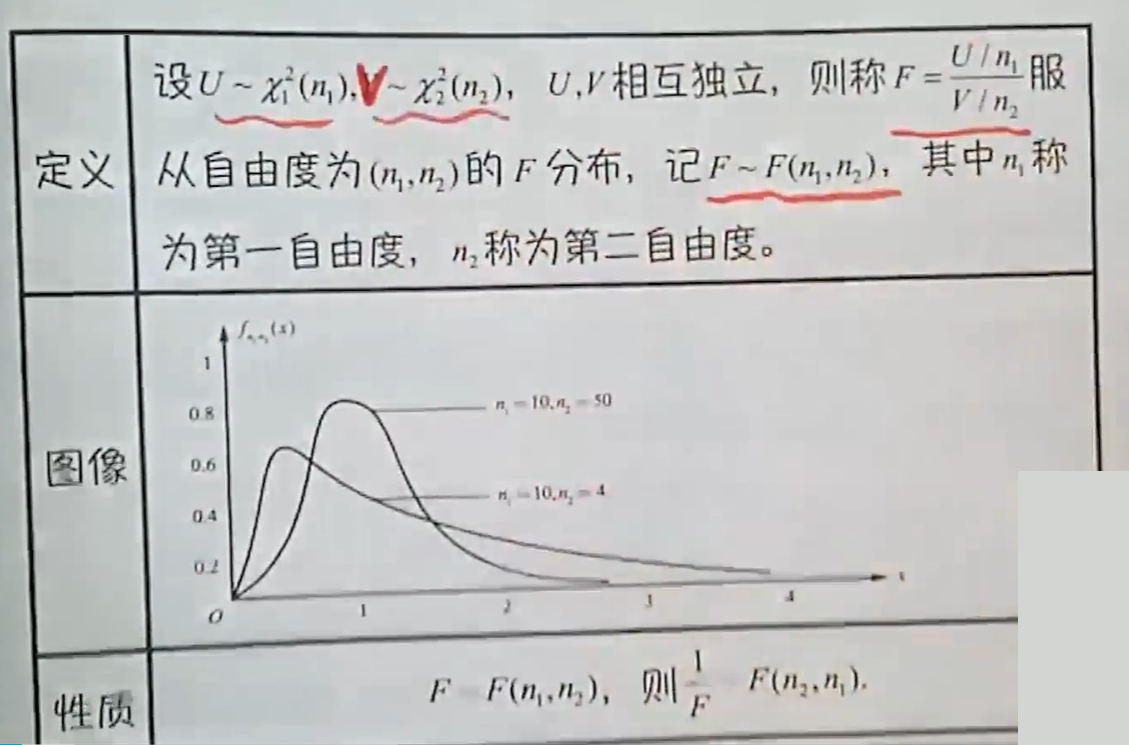 定义
设U~χ₁²(n₁),V~χ₂²(n₂), U,V相互独立, 则称F=(U/n₁)/(V/n₂)服
从自由度为(n₁,n₂)的F分布, 记F~F(n₁,n₂), 其中n₁称
为第一自由度, n₂称为第二自由度。
图像
fₙ₁ₙ₂(x)
1
0.8
n₁=10,n₂=50
0.6
n₁=10,n₂=4
0.4
0.2
x
O
1
2
3
4
性质
F~F(n₁,n₂), 则1/F~F(n₂,n₁).